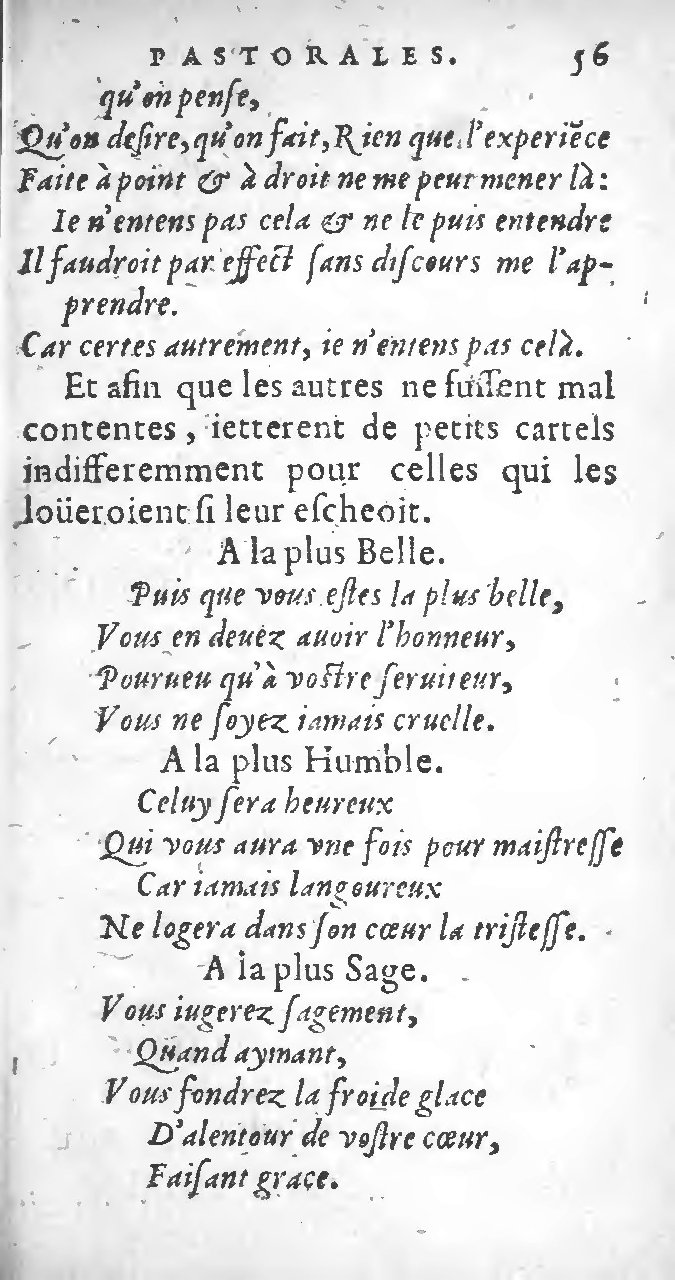 PASTORALES. 56
qu'on penſe,
Qu'on deſire, qu'on fait, Rien que l'experiẽce
Faite à point & à droit ne me peut mener là:
Ie n'entens pas cela & ne le puis entendre
Il faudroit par effect ſans diſcours me l'ap-
prendre.
Car certes autrement, ie n'entens pas celà.
Et afin que les autres ne fuſſent mal
contentes, ietterent de petits cartels
indifferemment pour celles qui les
loüeroient ſi leur eſcheoit.
A la plus Belle.
Puis que vous eſtes la plus belle,
Vous en deuez auoir l'honneur,
Pourueu qu'à voſtre ſeruiteur,
Vous ne ſoyez iamais cruelle.
A la plus Humble.
Celuy ſera heureux
Qui vous aura vne fois pour maiſtreſſe
Car iamais langoureux
Ne logera dans ſon cœur la triſteſſe.
A la plus Sage.
Vous iugerez ſagement,
Quand aymant,
Vous fondrez la froide glace
D'alentour de voſtre cœur,
Faiſant grace.